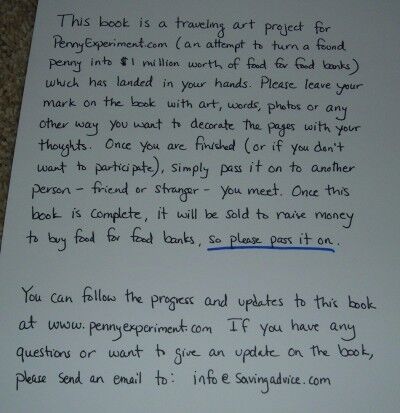 This book is a traveling art project for
PennyExperiment.com (an attempt to turn a found
penny into $1 million worth of food for food banks)
which has landed in your hands. Please leave your
mark on the book with art, words, photos or any
other way you want to decorate the pages with your
thoughts. Once you are finished (or if you don't
want to participate), simply pass it on to another
person - friend or stranger - you meet. Once this
book is complete, it will be sold to raise money
to buy food for food banks, so please pass it on.
You can follow the progress and updates to this book
at www.pennyexperiment.com If you have any
questions or want to give an update on the book,
please send an email to: info@savingadvice.com